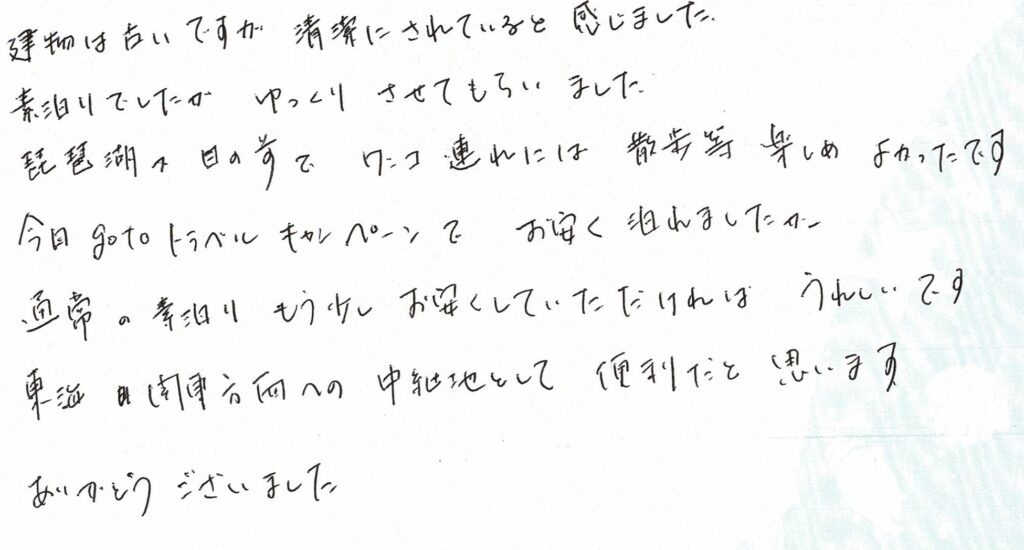 建物は古いですが 清潔にされていると 感じました。
素泊りでしたが ゆっくり させてもらいました。
琵琶湖が目の前で ワンコ連れには 散歩等 楽しめ よかったです
今回 goto トラベル キャンペーンで お安く 泊れましたが
通常の素泊り もう少し お安くしていただければ うれしいです
東海 関東方面への 中継地として 便利だと 思います
ありがとう ございました